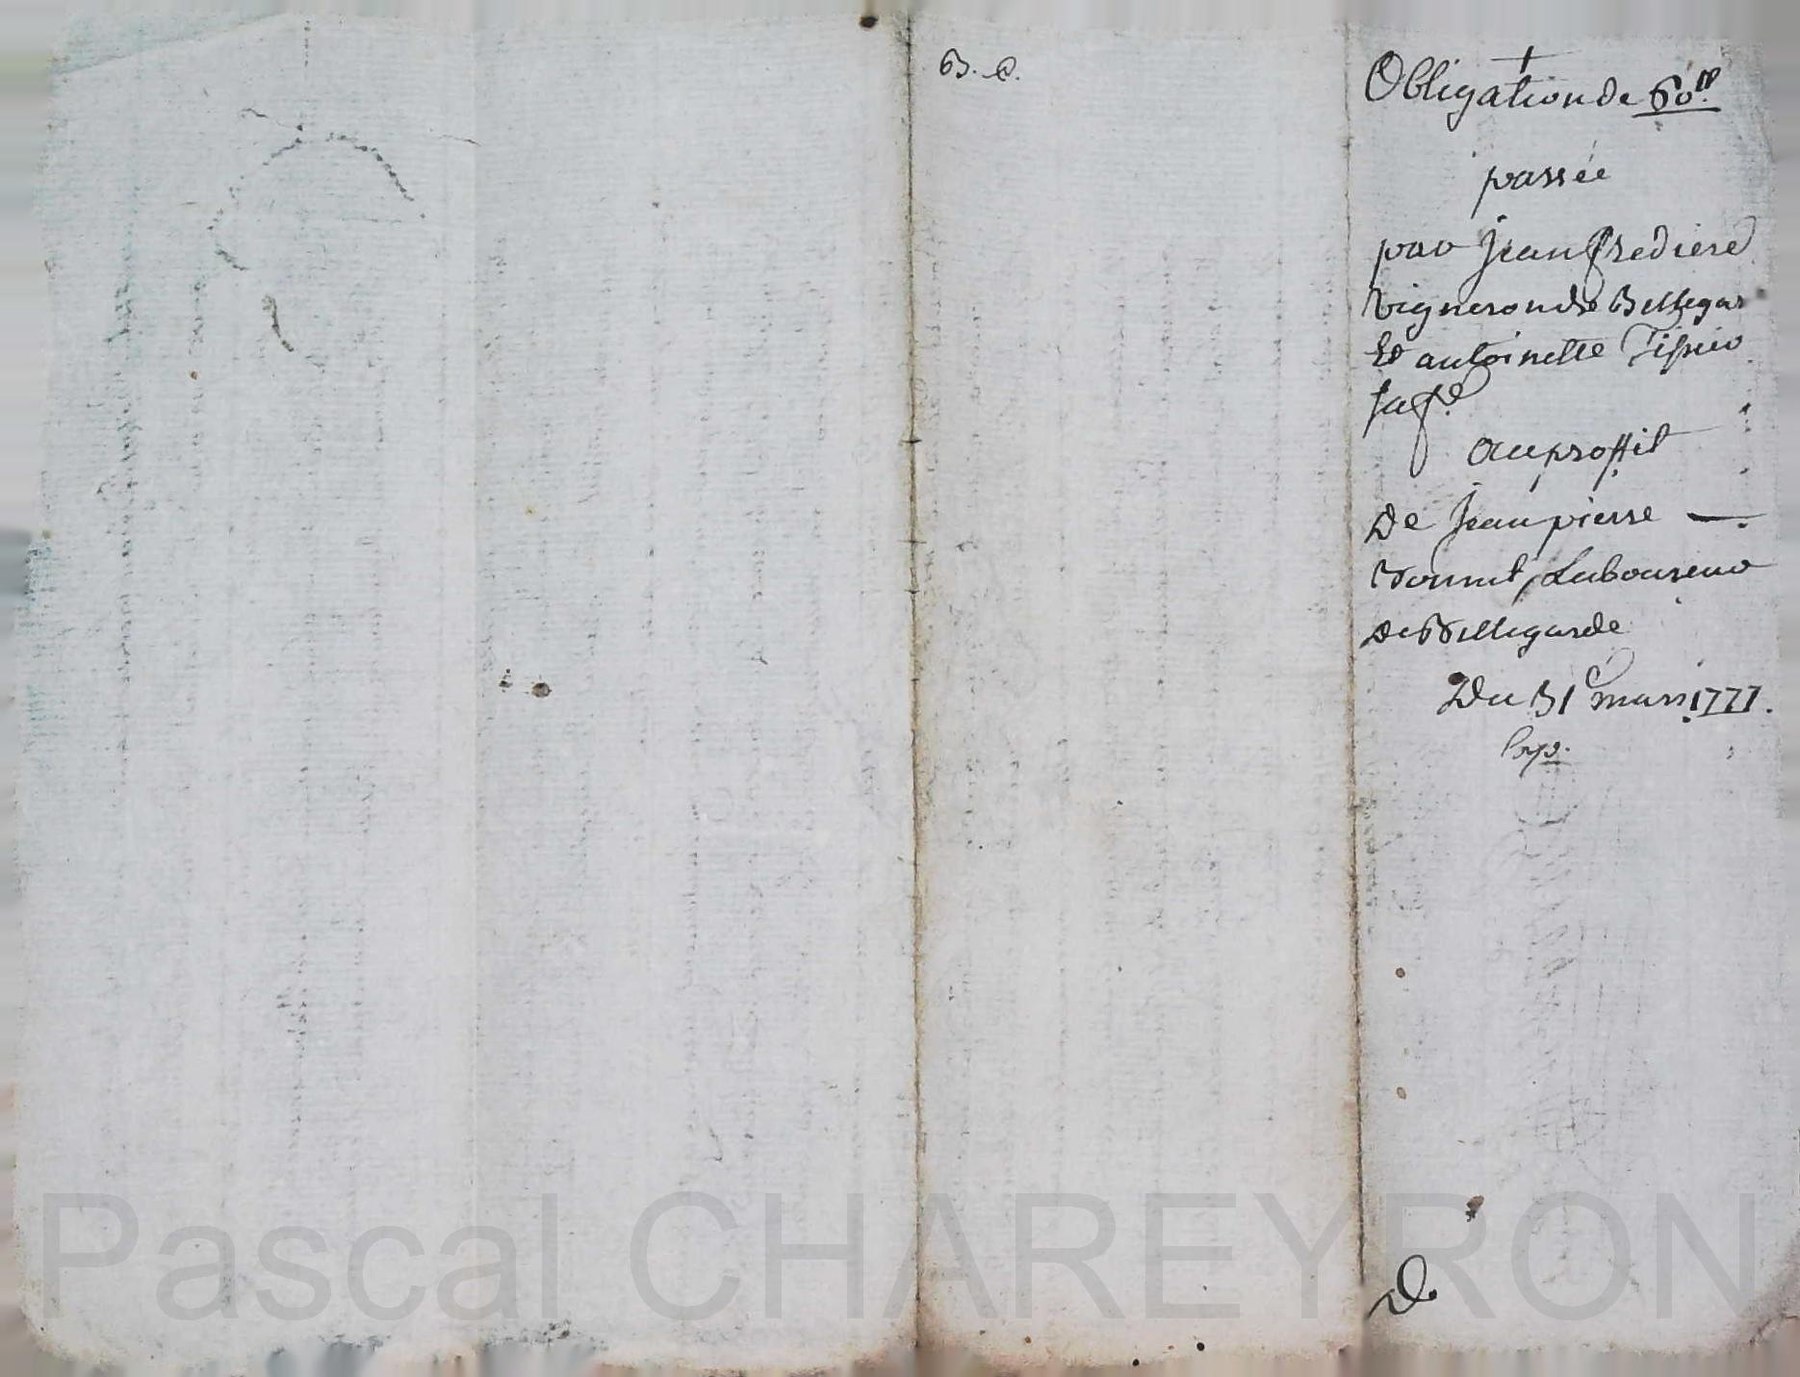 B. C.
Obligation de 60ll
passée
par Jean Prediere
vigneron de Bellegar
Et antoinette Tissier
sa fe
au proffit
De Jean pierre
Laboureur
De Bellegarde
Du 31 mars 1777.
D.
Pascal CHAREYRON